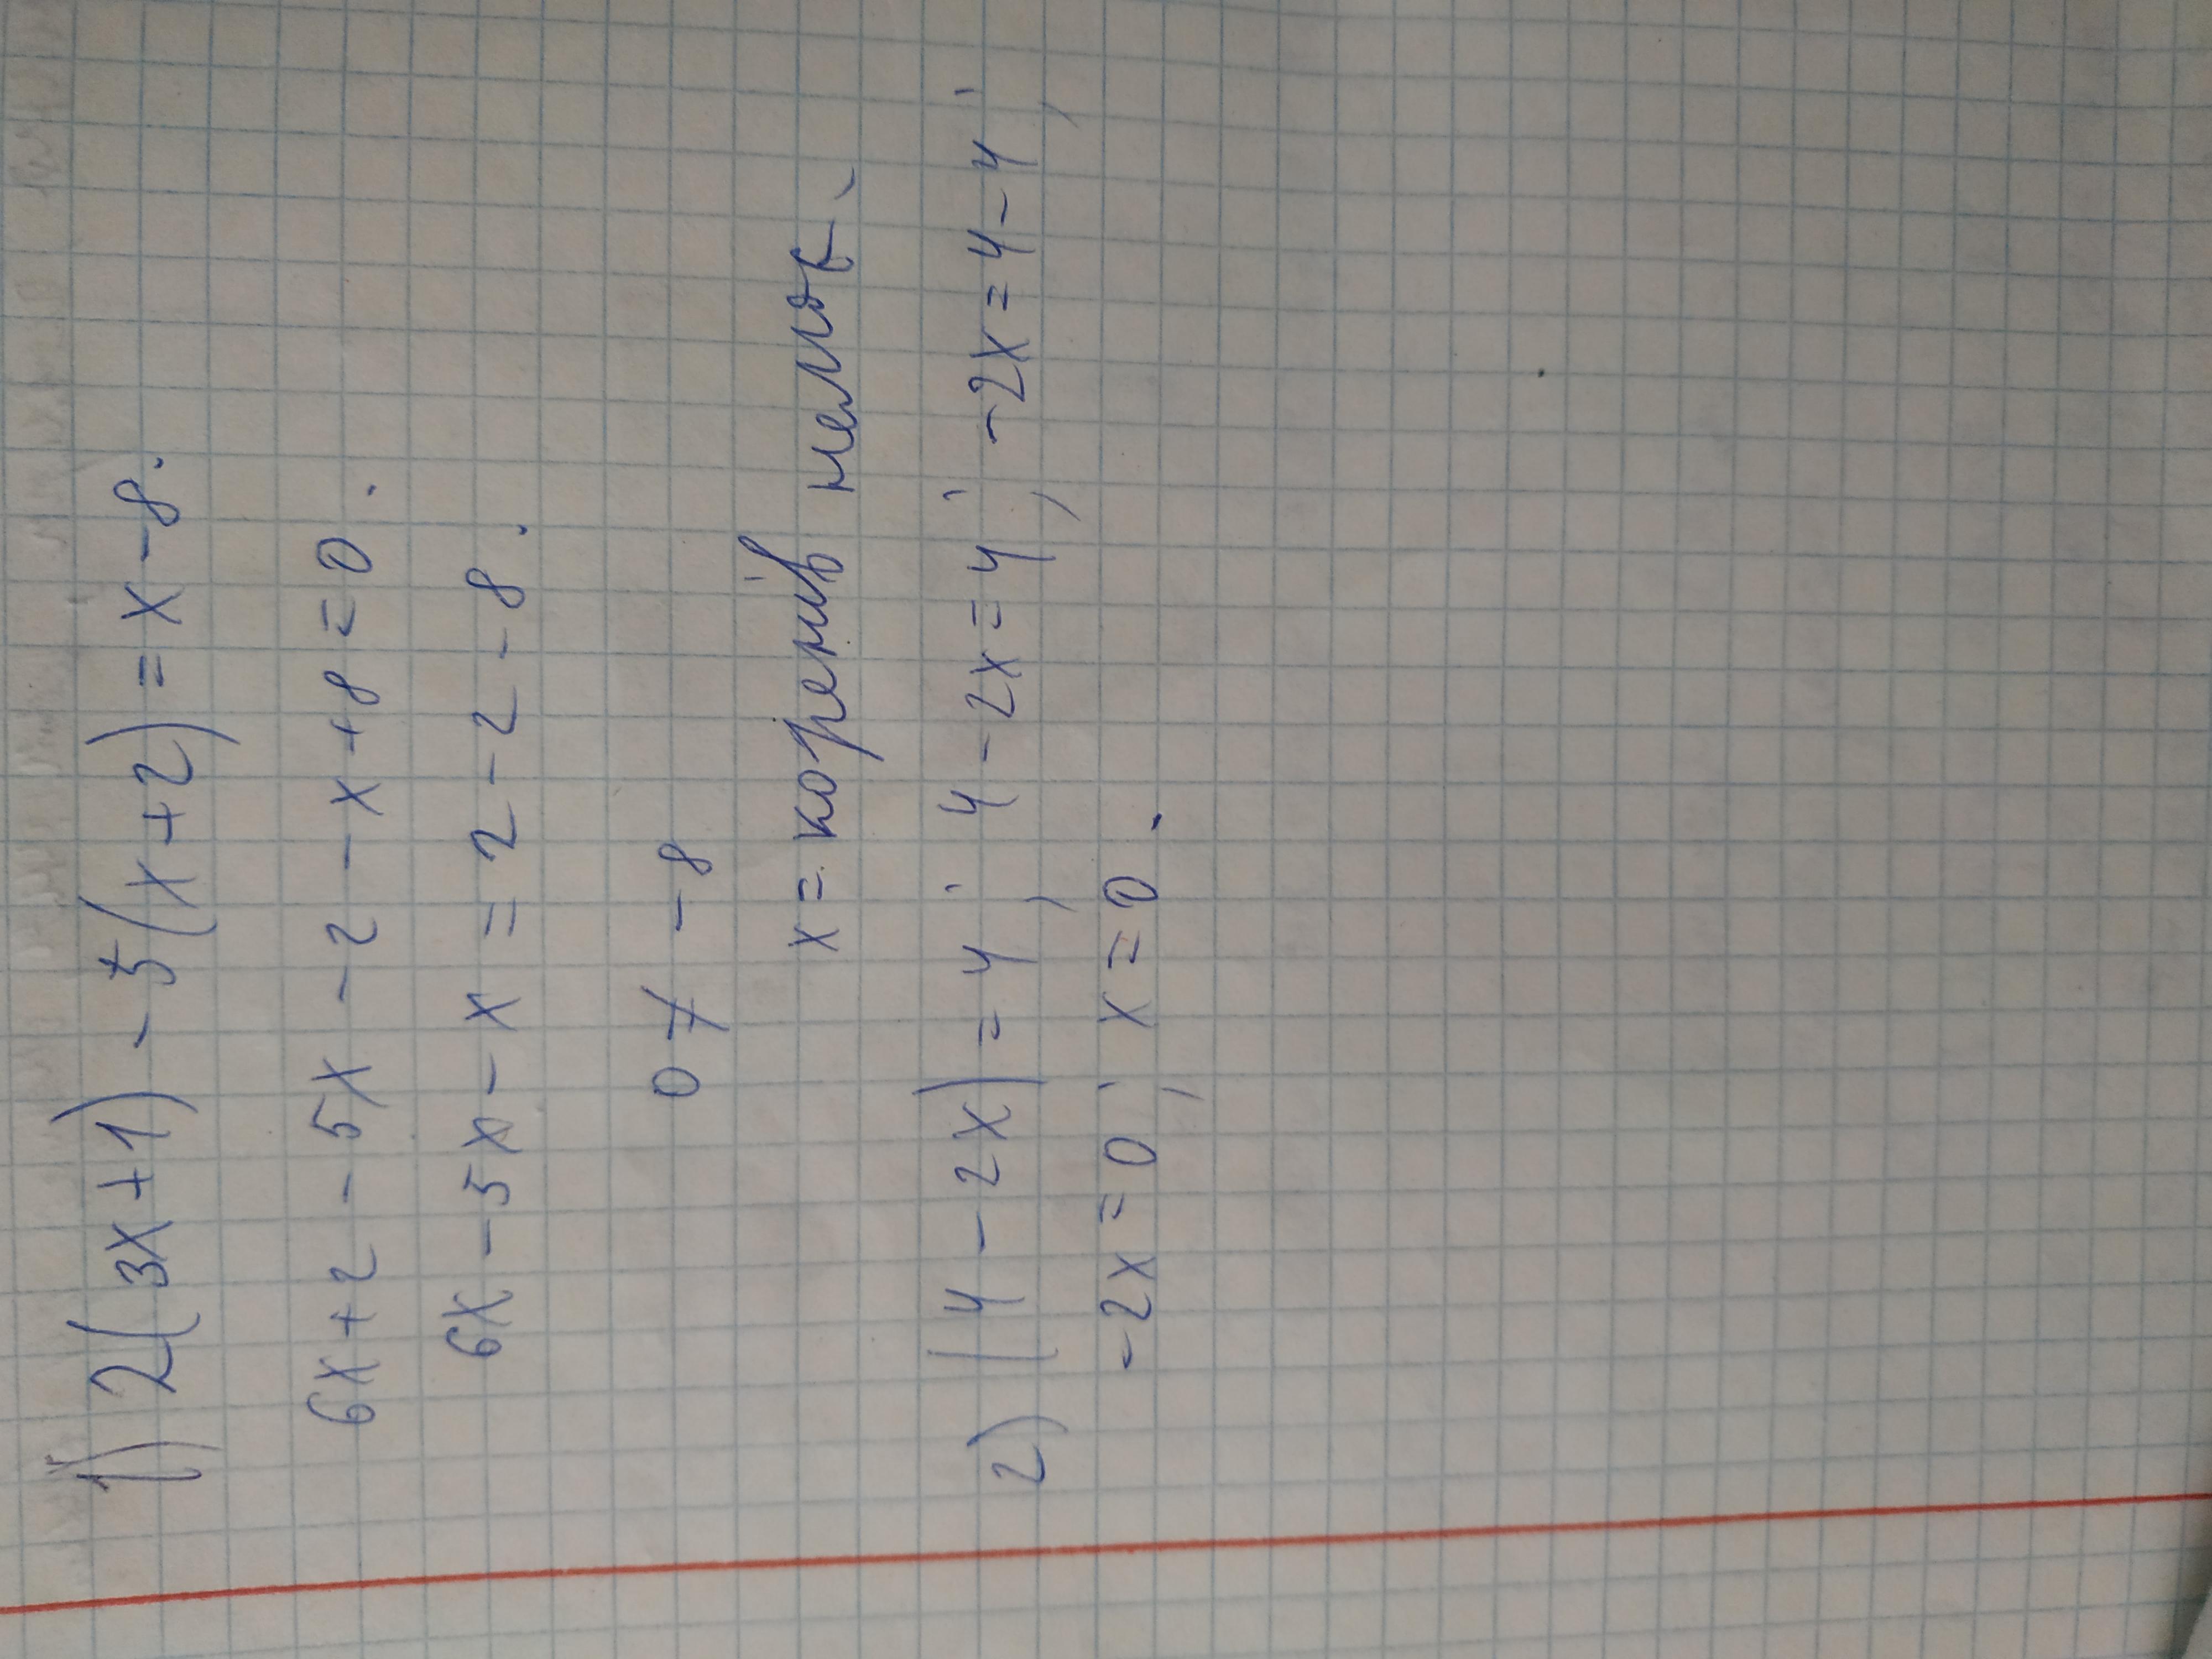 1) 2(3x+1) - 5(x+2) = x - 8.
6x + 2 - 5x - 2 - x + 8 = 0.
6x - 5x - x = 2 - 2 - 8.
0 ≠ - 8
x = коренів немає.
2) |4 - 2x| = 4; 4 - 2x = 4; -2x = 4 - 4;
-2x = 0; x = 0.